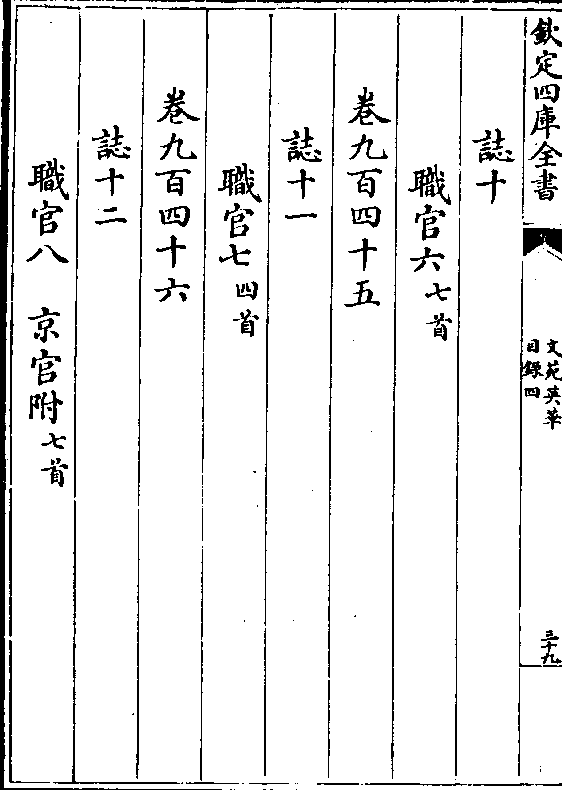 欽定四庫全書
文苑英華
目錄四
三十九
誌十
職官六七首
卷九百四十五
誌十一
職官七四首
卷九百四十六
誌十二
職官八　京官附七首